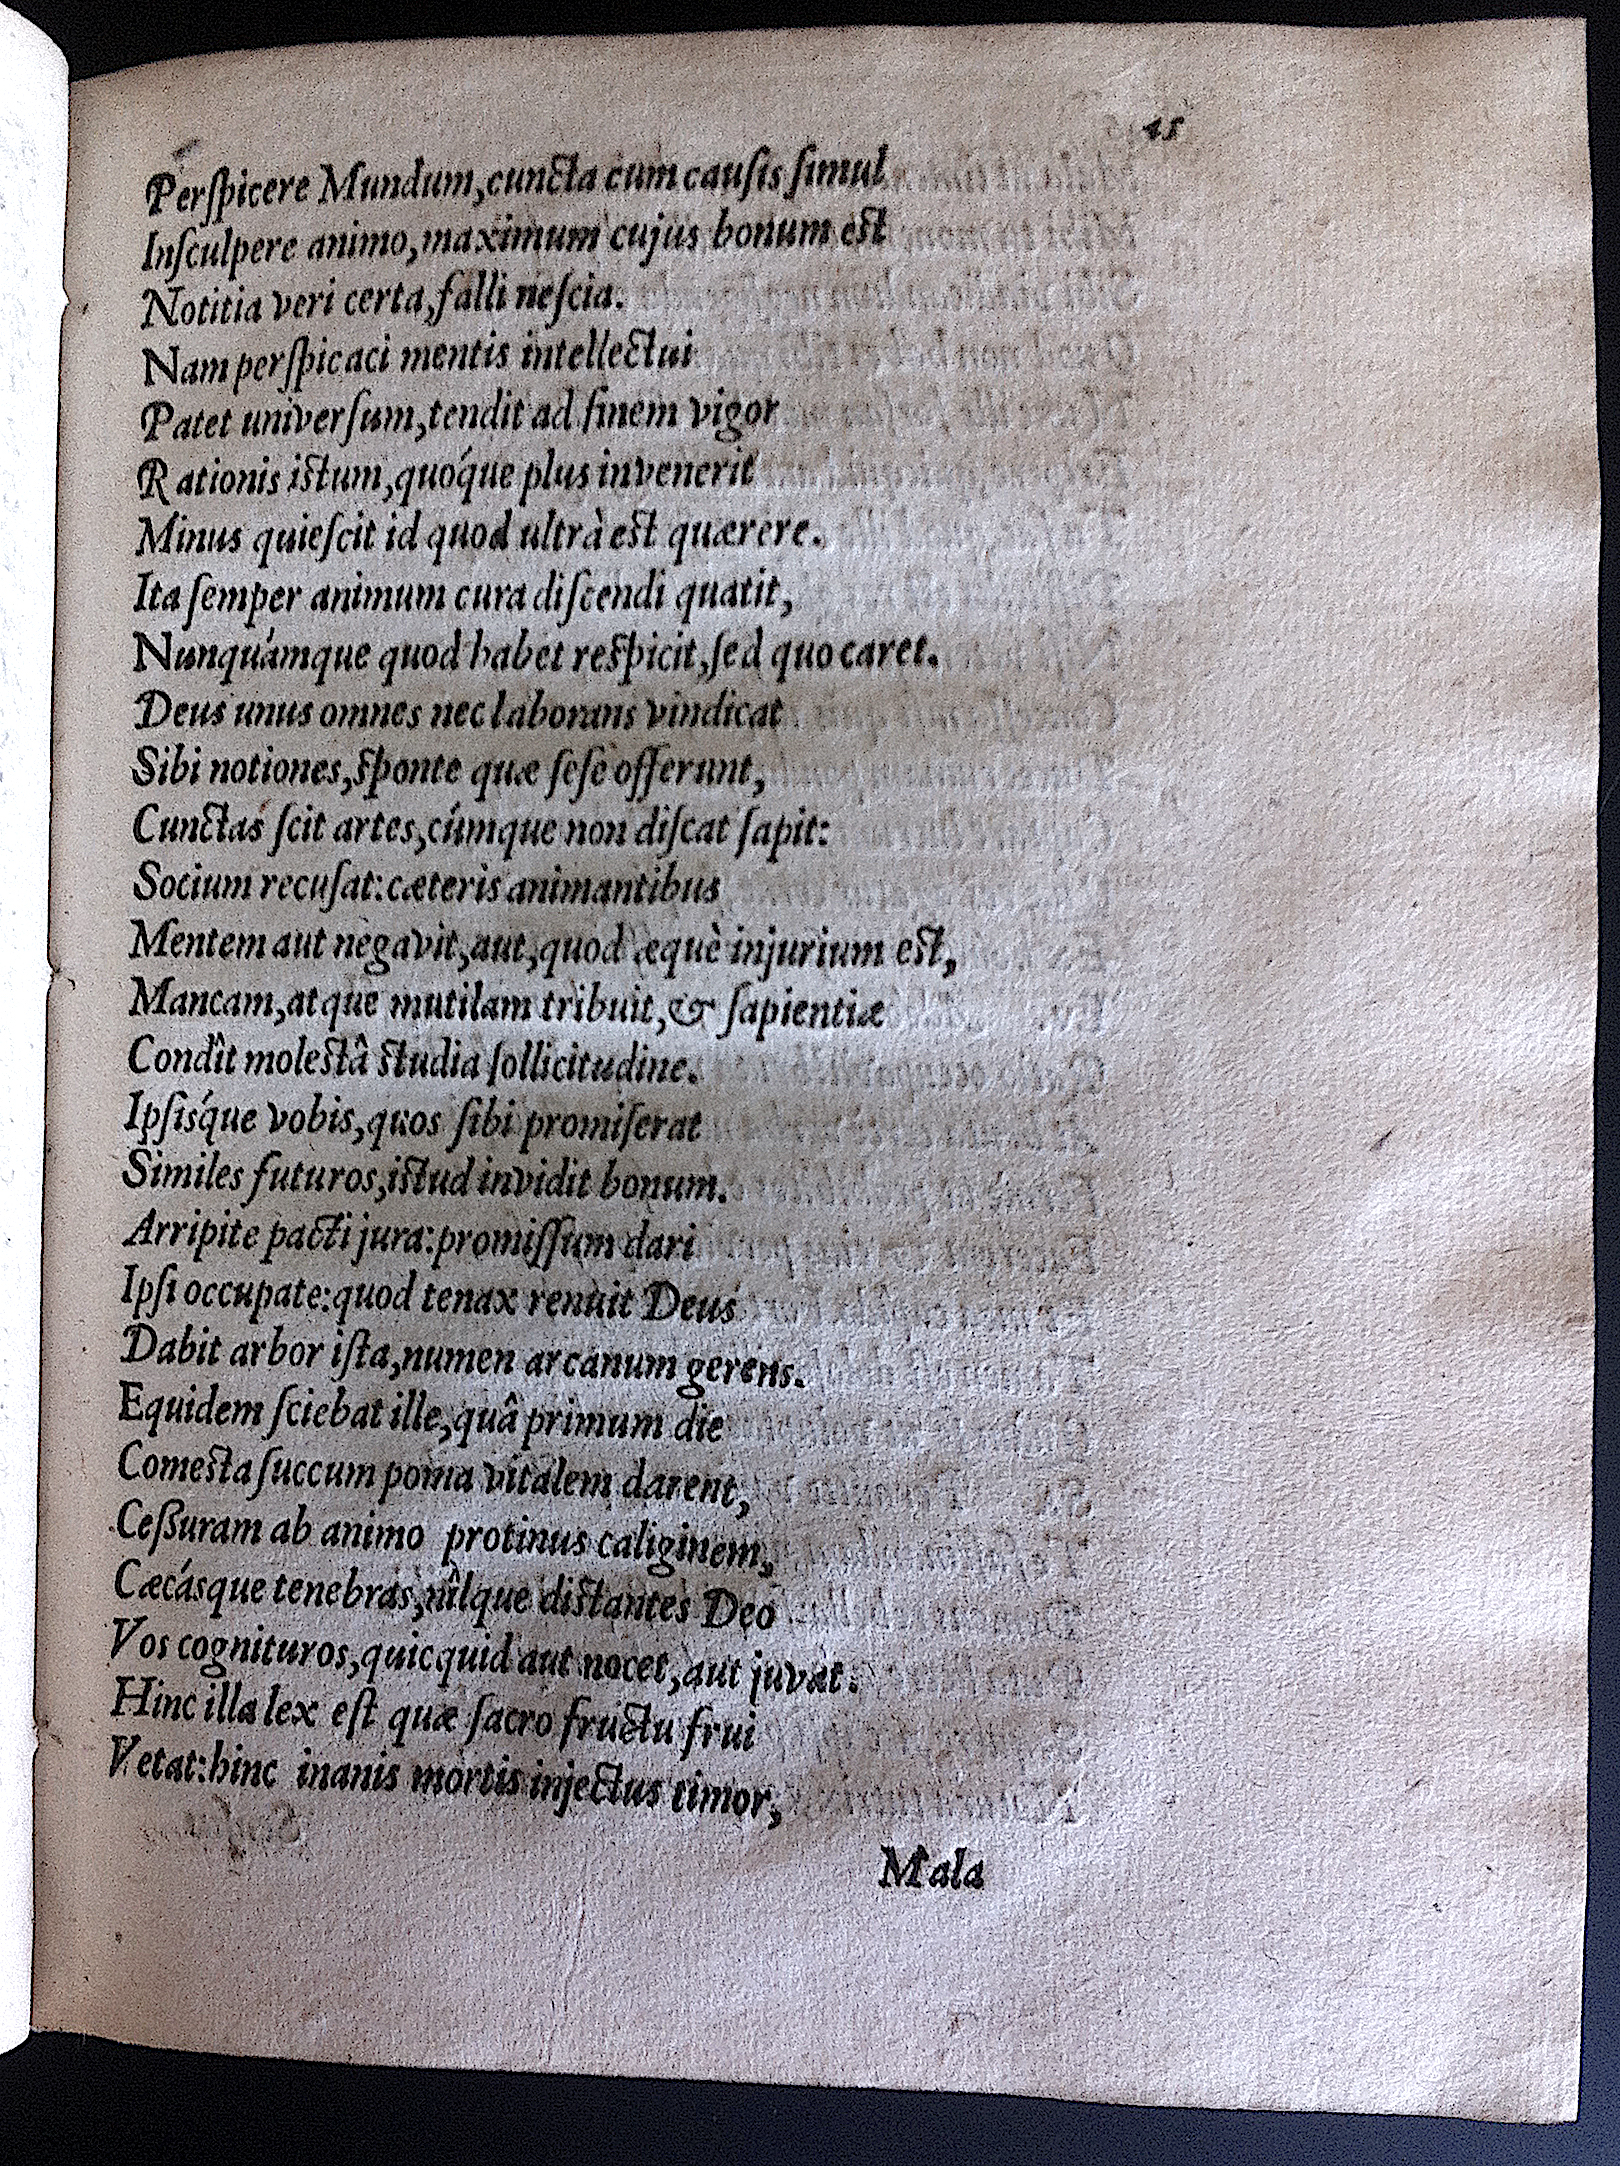 45
Perſpicere Mundum, cuncta cum cauſis ſimul
Inſculpere animo, maximum cujus bonum est
Notitia veri certa, falli neſcia.
Nam perſpicaci mentis intellectui
Patet univerſum, tendit ad finem vigor
Rationis istum, quóque plus invenerit
Minus quieſcit id quod ultrà est quærere.
Ita ſemper animum cura diſcendi quatit,
Nunquámque quod habet respicit, ſed quo caret.
Deus unus omnes nec laborans vindicat
Sibi notiones, sponte quæ ſeſe offerunt,
Cunctas ſcit artes, cúmque non diſcat ſapit:
Socium recuſat: cæteris animantibus
Mentem aut negavit, aut, quod æquè injurium est,
Mancam, atque mutilam tribuit, & ſapientiæ
Condît molestâ studia ſollicitudine.
Ipſisque vobis, quos ſibi promiſerat
Similes futuros, istud invidit bonum.
Arripite pacti jura: promiſſum dari
Ipſi occupate: quod tenax renuit Deus
Dabit arbor iſta, numen arcanum gerens.
Equidem ſciebat ille, quâ primum die
Comesta ſuccum poma vitalem darent,
Ceßuram ab animo protinus caliginem,
Cæcásque tenebras, nîlque distantes Deo
Vos cognituros, quicquid aut nocet, aut juvat:
Hinc illa lex eſt quæ ſacro fructu frui
Vetat: hinc inanis mortis injectus timor,
Mala